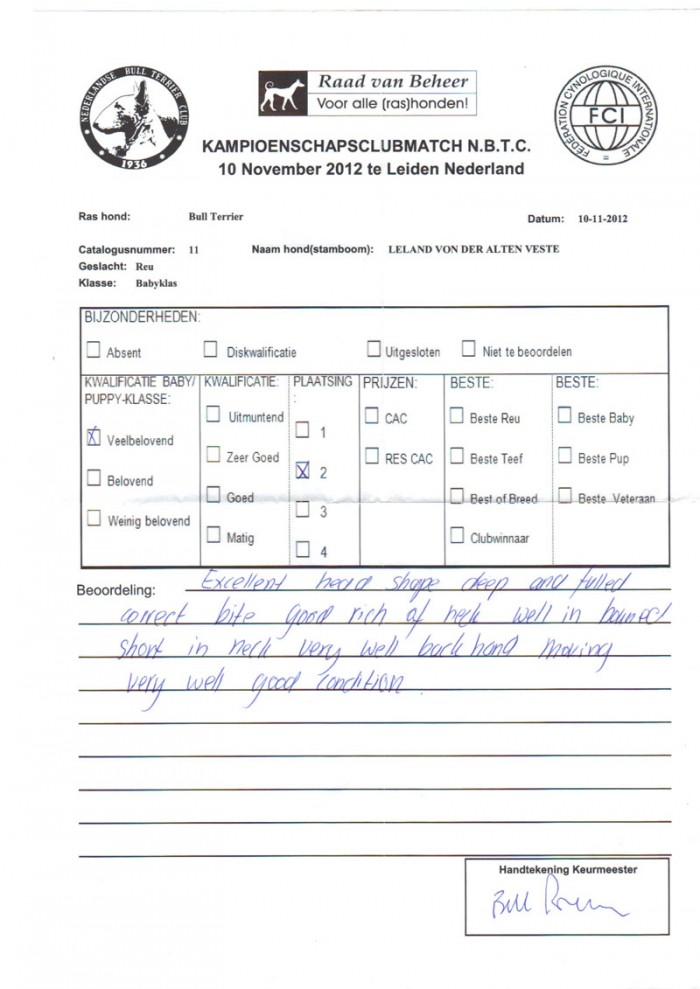 NEDERLANDSE BULL TERRIER CLUB
1936
Raad van Beheer
Voor alle (ras)honden!
FÉDÉRATION CYNOLOGIQUE INTERNATIONALE
FCI
KAMPIOENSCHAPSCLUBMATCH N.B.T.C.
10 November 2012 te Leiden Nederland
Ras hond: Bull Terrier Datum: 10-11-2012
Catalogusnummer: 11 Naam hond(stamboom): LELAND VON DER ALTEN VESTE
Geslacht: Reu
Klasse: Babyklas
BIJZONDERHEDEN:
Absent Diskwalificatie Uitgesloten Niet te beoordelen
KWALIFICATIE BABY/
PUPPY-KLASSE:
Veelbelovend
Belovend
Weinig belovend
KWALIFICATIE:
Uitmuntend
Zeer Goed
Goed
Matig
PLAATSING
:
1
2
3
4
PRIJZEN:
CAC
RES CAC
BESTE:
Beste Reu
Beste Teef
Best of Breed
Clubwinnaar
BESTE:
Beste Baby
Beste Pup
Beste Veteraan
Beoordeling: Excellent head shape deep and fulled
correct bite good rich of neck well in
short in neck very well back hand moving
very well good condition
Handtekening Keurmeester
Bill